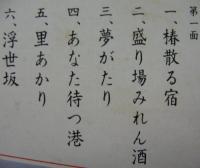 第一面
一、椿散る宿
二、盛り場みれん酒
三、夢がたり
四、あなた待つ港
五、里あかり
六、浮世坂